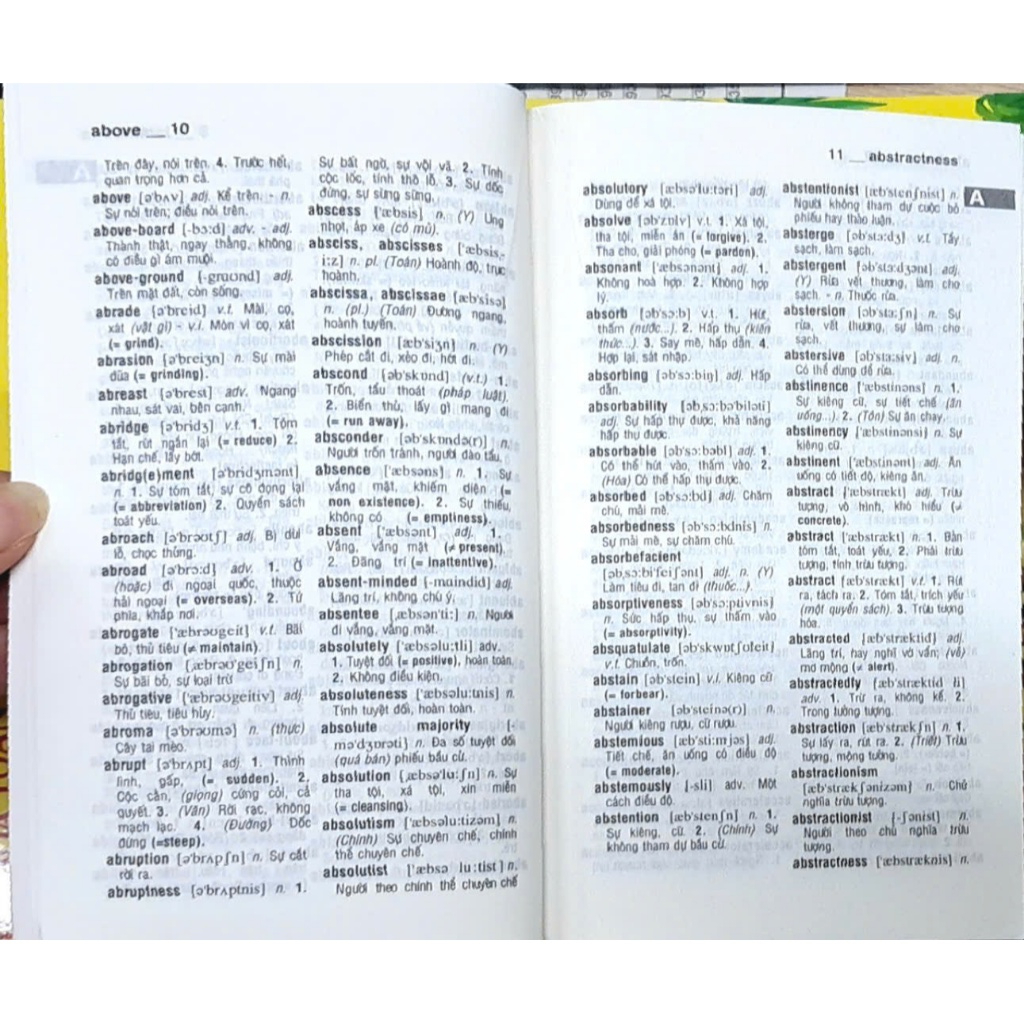 above __ 10
Trên đây, nói trên. 4. Trước hết,
quan trọng hơn cả.
above [ə'bʌv] adj. Kể trên. - n.
Sự nói trên; điều nói trên.
above-board [-bɔ:d] adv. - adj.
Thành thật, ngay thẳng, không
có điều gì ám muội.
above-ground [-graʊnd] adj.
Trên mặt đất, còn sống.
abrade [ə'breid] v.t. Mài, cọ,
xát (vật gì) - v.i. Mòn vì cọ, xát
(= grind).
abrasion [ə'breiʒn] n. Sự mài
dũa (= grinding).
abreast [ə'brest] adv. Ngang
nhau, sát vai, bên cạnh.
abridge [ə'bridʒ] v.t. 1. Tóm
tắt, rút ngắn lại (= reduce) 2.
Hạn chế, lấy bớt.
abridg(e)ment [ə'bridʒmənt]
n. 1. Sự tóm tắt, sự cô đọng lại
(= abbreviation) 2. Quyển sách
toát yếu.
abroach [ə'brəʊtʃ] adj. Bị dùi
lỗ, chọc thủng.
abroad [ə'brɔ:d] adv. 1. Ở
(hoặc) đi ngoại quốc, thuộc
hải ngoại (= overseas). 2. Tứ
phía, khắp nơi.
abrogate ['æbrəʊgeit] v.t. Bãi
bỏ, thủ tiêu (≠ maintain).
abrogation [,æbrəʊ'geiʃn] n.
Sự bãi bỏ, sự loại trừ
abrogative ['æbrəʊgeitiv] adj
Thủ tiêu, tiêu hủy.
abroma [ə'brəʊmə] n. (thực)
Cây tai mèo.
abrupt [ə'brʌpt] adj. 1. Thình
lình, gấp, (= sudden). 2.
Cộc cằn, (giọng) cứng cỏi, cả
quyết. 3. (Văn) Rời rạc, không
mạch lạc. 4. (Đường) Dốc
đứng (=steep).
abruption [ə'brʌpʃn] n. Sự cắt
rời ra.
abruptness [ə'brʌptnis] n. 1.
Sự bất ngờ, sự vội vã. 2. Tính
cộc lốc, tính thô lỗ. 3. Sự dốc
đứng, sự sừng sững.
abscess ['æbsis] n. (Y) Ung
nhọt, áp xe (có mủ).
absciss, abscisses ['æbsis,-
i:z] n. pl. (Toán) Hoành độ, trục
hoành.
abscissa, abscissae [æb'sisə]
n. (pl.) (Toán) Đường ngang,
hoành tuyến.
abscission [æb'siʒn] n. (Y)
Phép cắt đi, xẻo đi, hớt đi.
abscond [əb'skɒnd] (v.t.) 1.
Trốn, tẩu thoát (pháp luật).
2. Biển thủ, lấy gì mang đi
(= run away).
absconder [əb'skɒndə(r)] n.
Người trốn tránh, người đào tẩu.
absence ['æbsəns] n. 1. Sự
vắng mặt, khiếm diện (=
non existence). 2. Sự thiếu,
không có (= emptiness).
absent ['æbsənt] adj. 1.
Vắng, vắng mặt (≠ present).
2. Đãng trí (= inattentive).
absent-minded [-maindid] adj.
Lãng trí, không chú ý.
absentee [,æbsən'ti:] n. Người
đi vắng, vắng mặt.
absolutely ['æbsəlu:tli] adv.
1. Tuyệt đối (= positive), hoàn toàn.
2. Không điều kiện.
absoluteness ['æbsəlu:tnis] n.
Tính tuyệt đối, hoàn toàn.
absolute majority [-
mə'dʒɒrəti] n. Đa số tuyệt đối
(quá bán) phiếu bầu cử.
absolution [,æbsə'lu:ʃn] n. Sự
tha tội, xá tội, xin miễn
(= cleansing).
absolutism ['æbsəlu:tizəm] n.
(Chính) Sự chuyên chế, chính
thể chuyên chế.
absolutist ['æbsə lu:tist] n.
Người theo chính thể chuyên chế
11 __ abstractness
A
absolutory [æbsə'lu:təri] adj.
Dùng để xá tội.
absolve [əb'zɒlv] v.t. 1. Xá tội,
tha tội, miễn án (= forgive). 2.
Tha cho, giải phóng (= pardon).
absonant ['æbsənənt] adj. 1.
Không hoà hợp. 2. Không hợp
lý.
absorb [əb'sɔ:b] v.t. 1. Hút,
thấm (nước...). 2. Hấp thụ (kiến
thức...). 3. Say mê, hấp dẫn. 4.
Hợp lại, sát nhập.
absorbing [əb'sɔ:biŋ] adj. Hấp
dẫn.
absorbability [əb,sɔ:bə'biləti]
adj. Sự hấp thụ được, khả năng
hấp thụ được.
absorbable [əb'sɔ:bəbl] adj. 1.
Có thể hút vào, thấm vào. 2.
(Hóa) Có thể hấp thụ được.
absorbed [əb'sɔ:bd] adj. Chăm
chú, mải mê.
absorbedness [əb'sɔ:bdnis] n.
Sự mải mê, sự chăm chú.
absorbefacient
[əb,sɔ:bi'feiʃənt] adj. n. (Y)
Làm tiêu đi, tan đi (thuốc...).
absorptiveness [əb'sɔ:ptivnis]
n. Sức hấp thụ, sự thấm vào
(= absorptivity).
absquatulate [əb'skwɒtʃʊleit]
v.t. Chuồn, trốn.
abstain [əb'stein] v.i. Kiêng cữ
(= forbear).
abstainer [əb'steinə(r)] n.
Người kiêng rượu, cữ rượu.
abstemious [æb'sti:mjəs] adj.
Tiết chế, ăn uống có điều độ
(= moderate).
abstemously [-sli] adv. Một
cách điều độ.
abstention [æb'stenʃn] n. 1.
Sự kiêng, cữ. 2. (Chính) Sự
không tham dự bầu cử.
abstentionist [æb'stenʃnist] n.
Người không tham dự cuộc bỏ
phiếu hay thảo luận.
absterge [əb'stɜ:dʒ] v.t Tẩy
sạch, làm sạch.
abstergent [əb'stɜ:dʒənt] adj.
(Y) Rửa vết thương, làm cho
sạch. - n. Thuốc rửa.
abstersion [əb'stɜ:ʃn] n. Sự
rửa, vết thương, sự làm cho
sạch.
abstersive [əb'stɜ:siv] adj. n.
Có thể dùng để rửa.
abstinence ['æbstinəns] n. 1.
Sự kiêng cữ, sự tiết chế (ăn
uống...). 2. (Tôn) Sự ăn chay.
abstinency ['æbstinənsi] n. Sự
kiêng cữ.
abstinent ['æbstinənt] adj. Ăn
uống có tiết độ, kiêng ăn.
abstract ['æbstrækt] adj. Trừu
tượng, vô hình, khó hiểu (≠
concrete).
abstract ['æbstrækt] n. 1. Bản
tóm tắt, toát yếu. 2. Phái trừu
tượng, tính trừu tượng.
abstract [æb'strækt] v.t. 1. Rút
ra, tách ra. 2. Tóm tắt, trích yếu
(một quyển sách). 3. Trừu tượng
hóa.
abstracted [æb'stræktid] adj.
Lãng trí, hay nghĩ vơ vẩn; (vẻ)
mơ mộng (≠ alert).
abstractedly [æb'stræktid li]
adv. 1. Trừ ra, không kể. 2.
Trong tưởng tượng.
abstraction [æb'strækʃn] n. 1.
Sự lấy ra, rút ra. 2. (Triết) Trừu
tượng, mộng tưởng.
abstractionism
[æb'strækʃənizəm] n. Chủ
nghĩa trừu tượng.
abstractionist [-ʃənist] n.
Người theo chủ nghĩa trừu
tượng.
abstractness ['æbstræktnis] n.